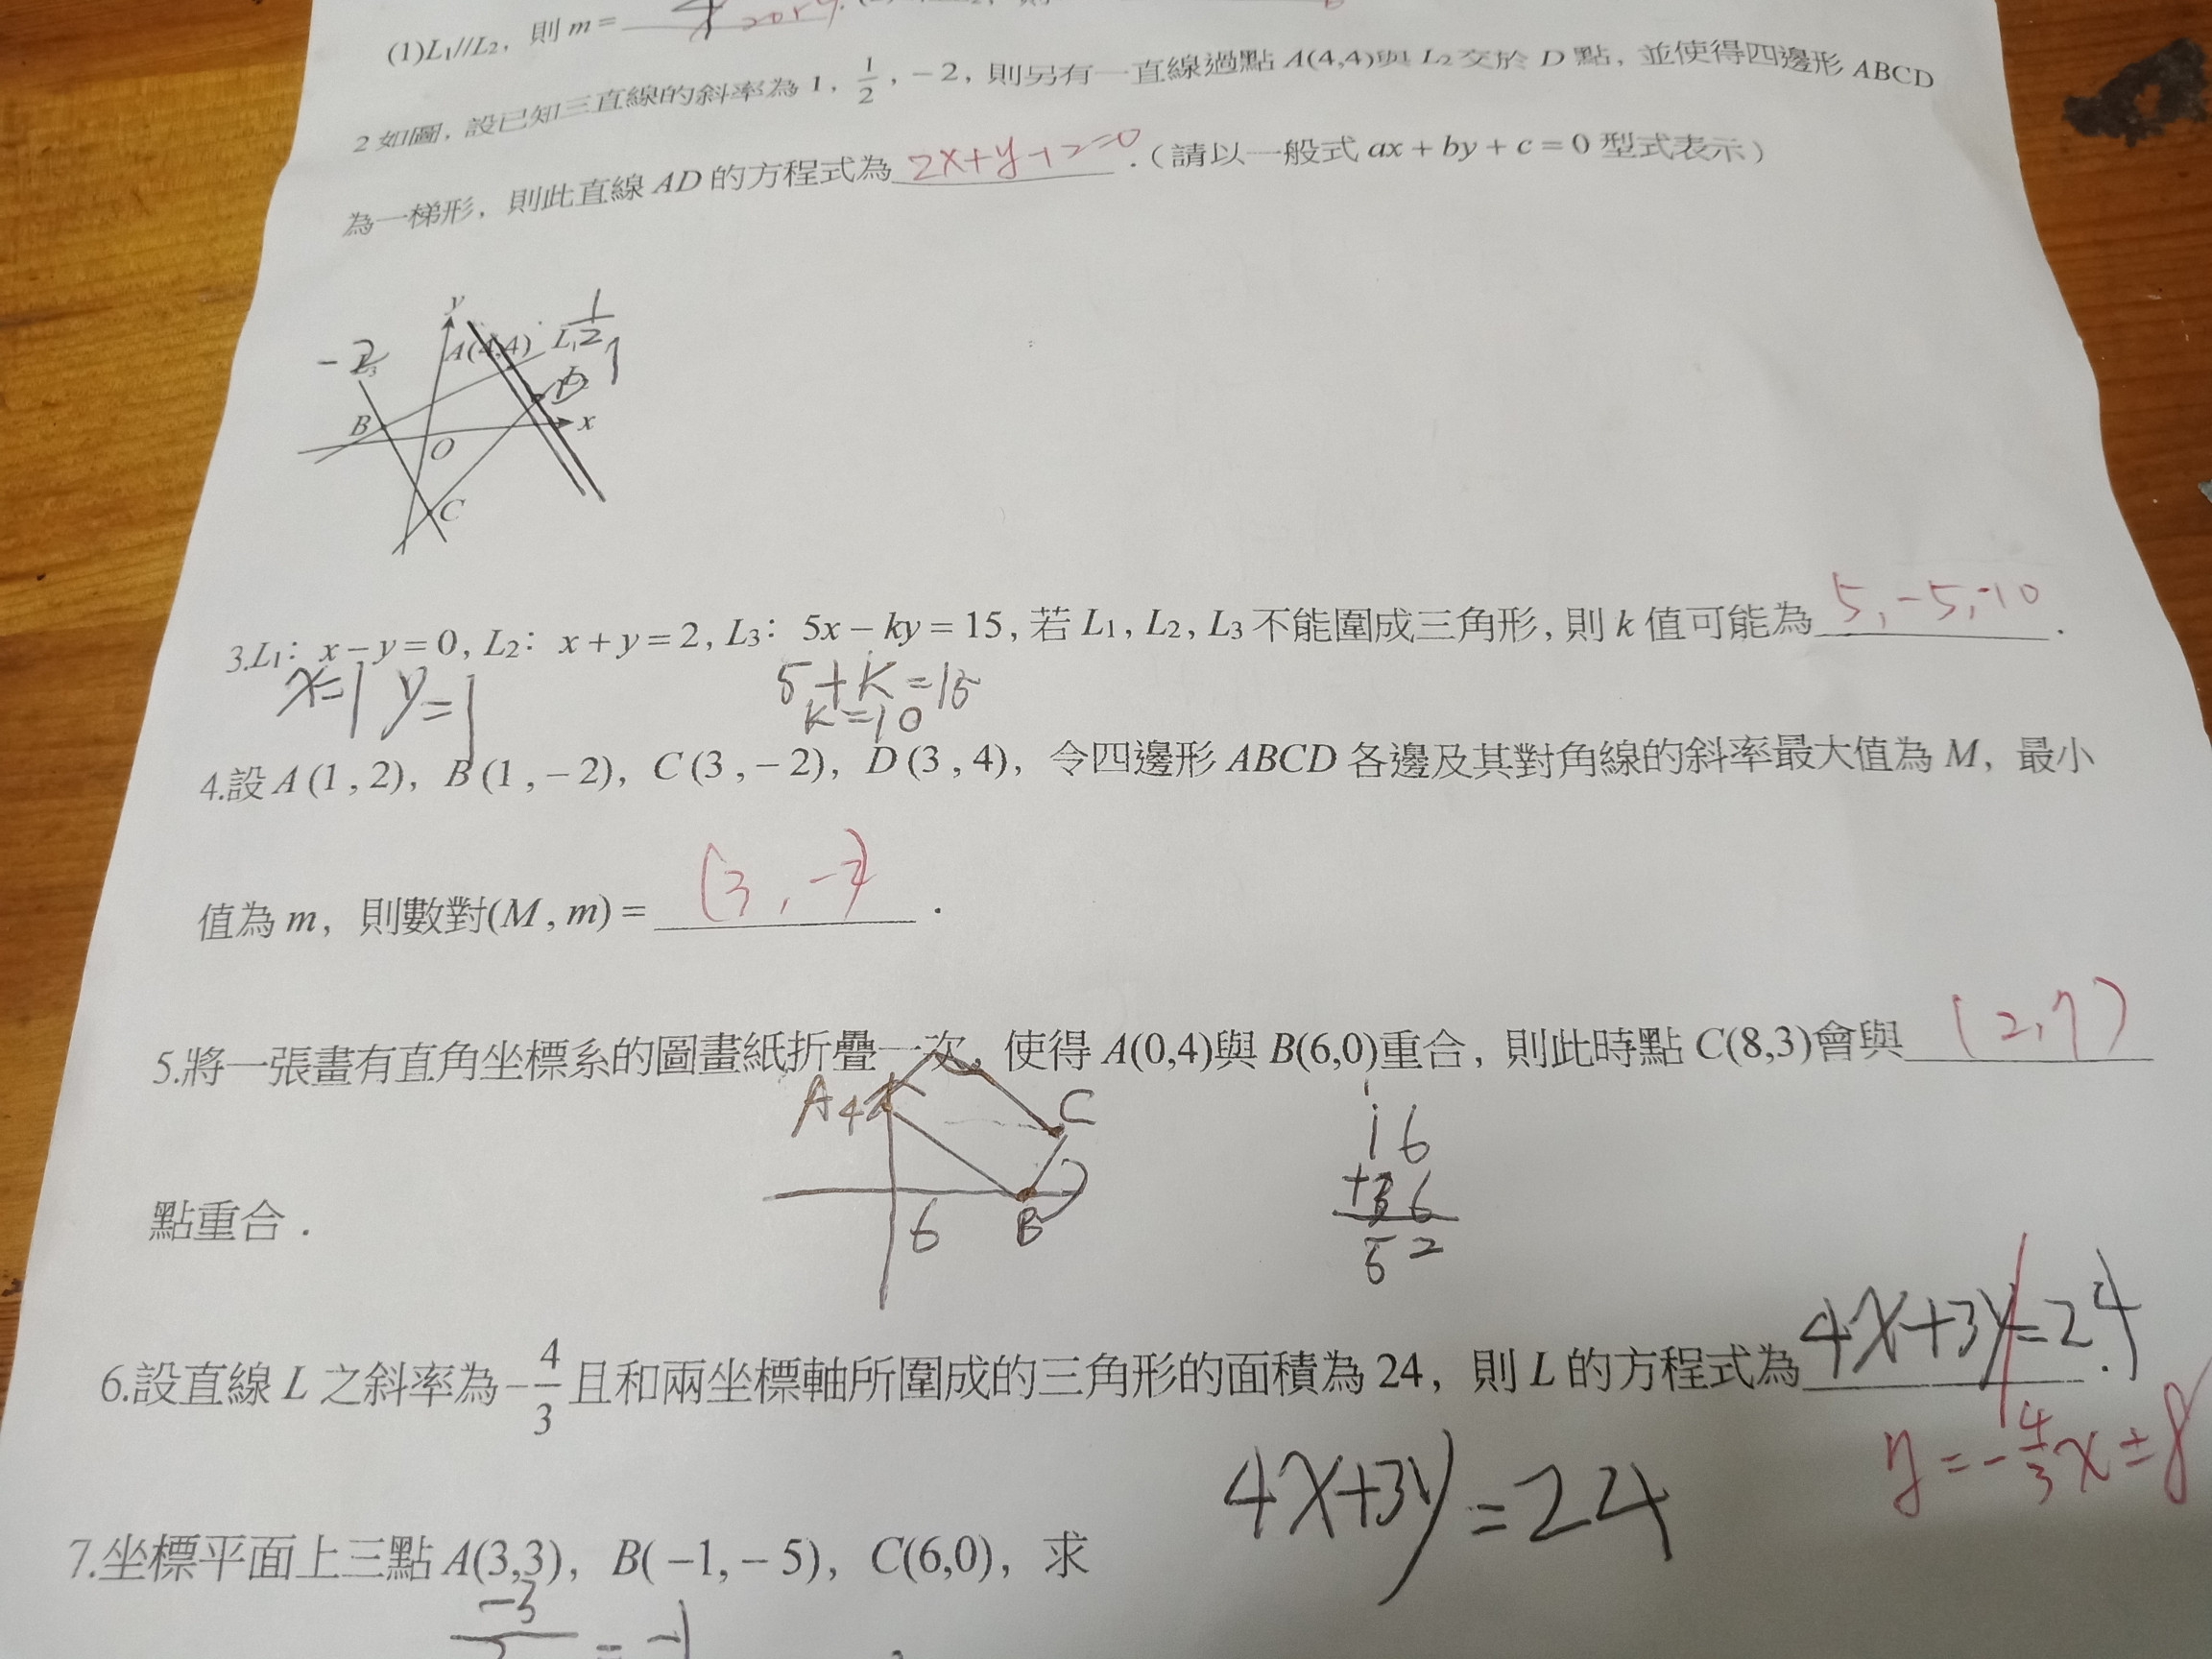 (1)L₁//L₂, 則 m = 4
2 如圖, 設已知三直線的斜率為 1, 1/2, −2, 則另有一直線過點 A(4,4)與 L₂ 交於 D 點, 並使得四邊形 ABCD
為一梯形, 則此直線 AD 的方程式為 2x+y-12=0 .(請以一般式 ax + by + c = 0 型式表示)
y
A(4,4) L₁ 1/2
-2 L₃ D 1
B O x
C
3.L₁: x − y = 0, L₂: x + y = 2, L₃: 5x − ky = 15, 若 L₁, L₂, L₃ 不能圍成三角形, 則 k 值可能為 5, -5, -10 .
x=1 y=1 5+k=15
k=10
4.設 A (1 , 2), B (1 , − 2), C (3 , − 2), D (3 , 4), 令四邊形 ABCD 各邊及其對角線的斜率最大值為 M, 最小
值為 m, 則數對(M , m) = (3, -2) .
5.將一張畫有直角坐標系的圖畫紙折疊一次, 使得 A(0,4)與 B(6,0)重合, 則此時點 C(8,3)會與 (2,7)
點重合.
A 4 C
6 B
16
+36
52
6.設直線 L 之斜率為 −4/3 且和兩坐標軸所圍成的三角形的面積為 24, 則 L 的方程式為 4x+3y=24 .
y = -4/3 x ± 8
4x+3y=24
7.坐標平面上三點 A(3,3), B( −1, − 5), C(6,0), 求
-3
= -1